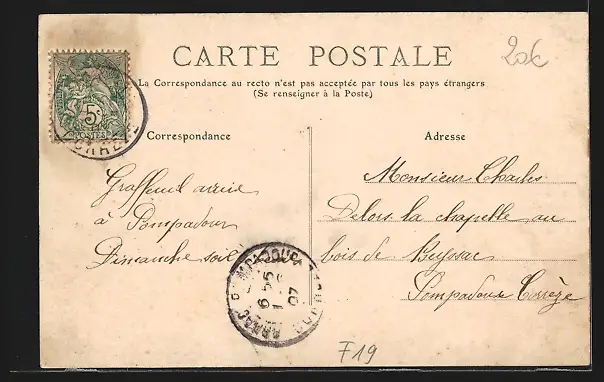 CARTE POSTALE
20€
La Correspondance au recto n'est pas acceptée par tous les pays étrangers
(Se renseigner à la Poste)
5c
POSTES
CORRÈZE
Correspondance
Graffeuil arrive
à Pompadour
Dimanche soir
Adresse
Monsieur Charles
Delors la chapelle au
bois de Beyssac
Pompadour Corrèze
ARNAC-POMPADOUR
6 45
07
F19